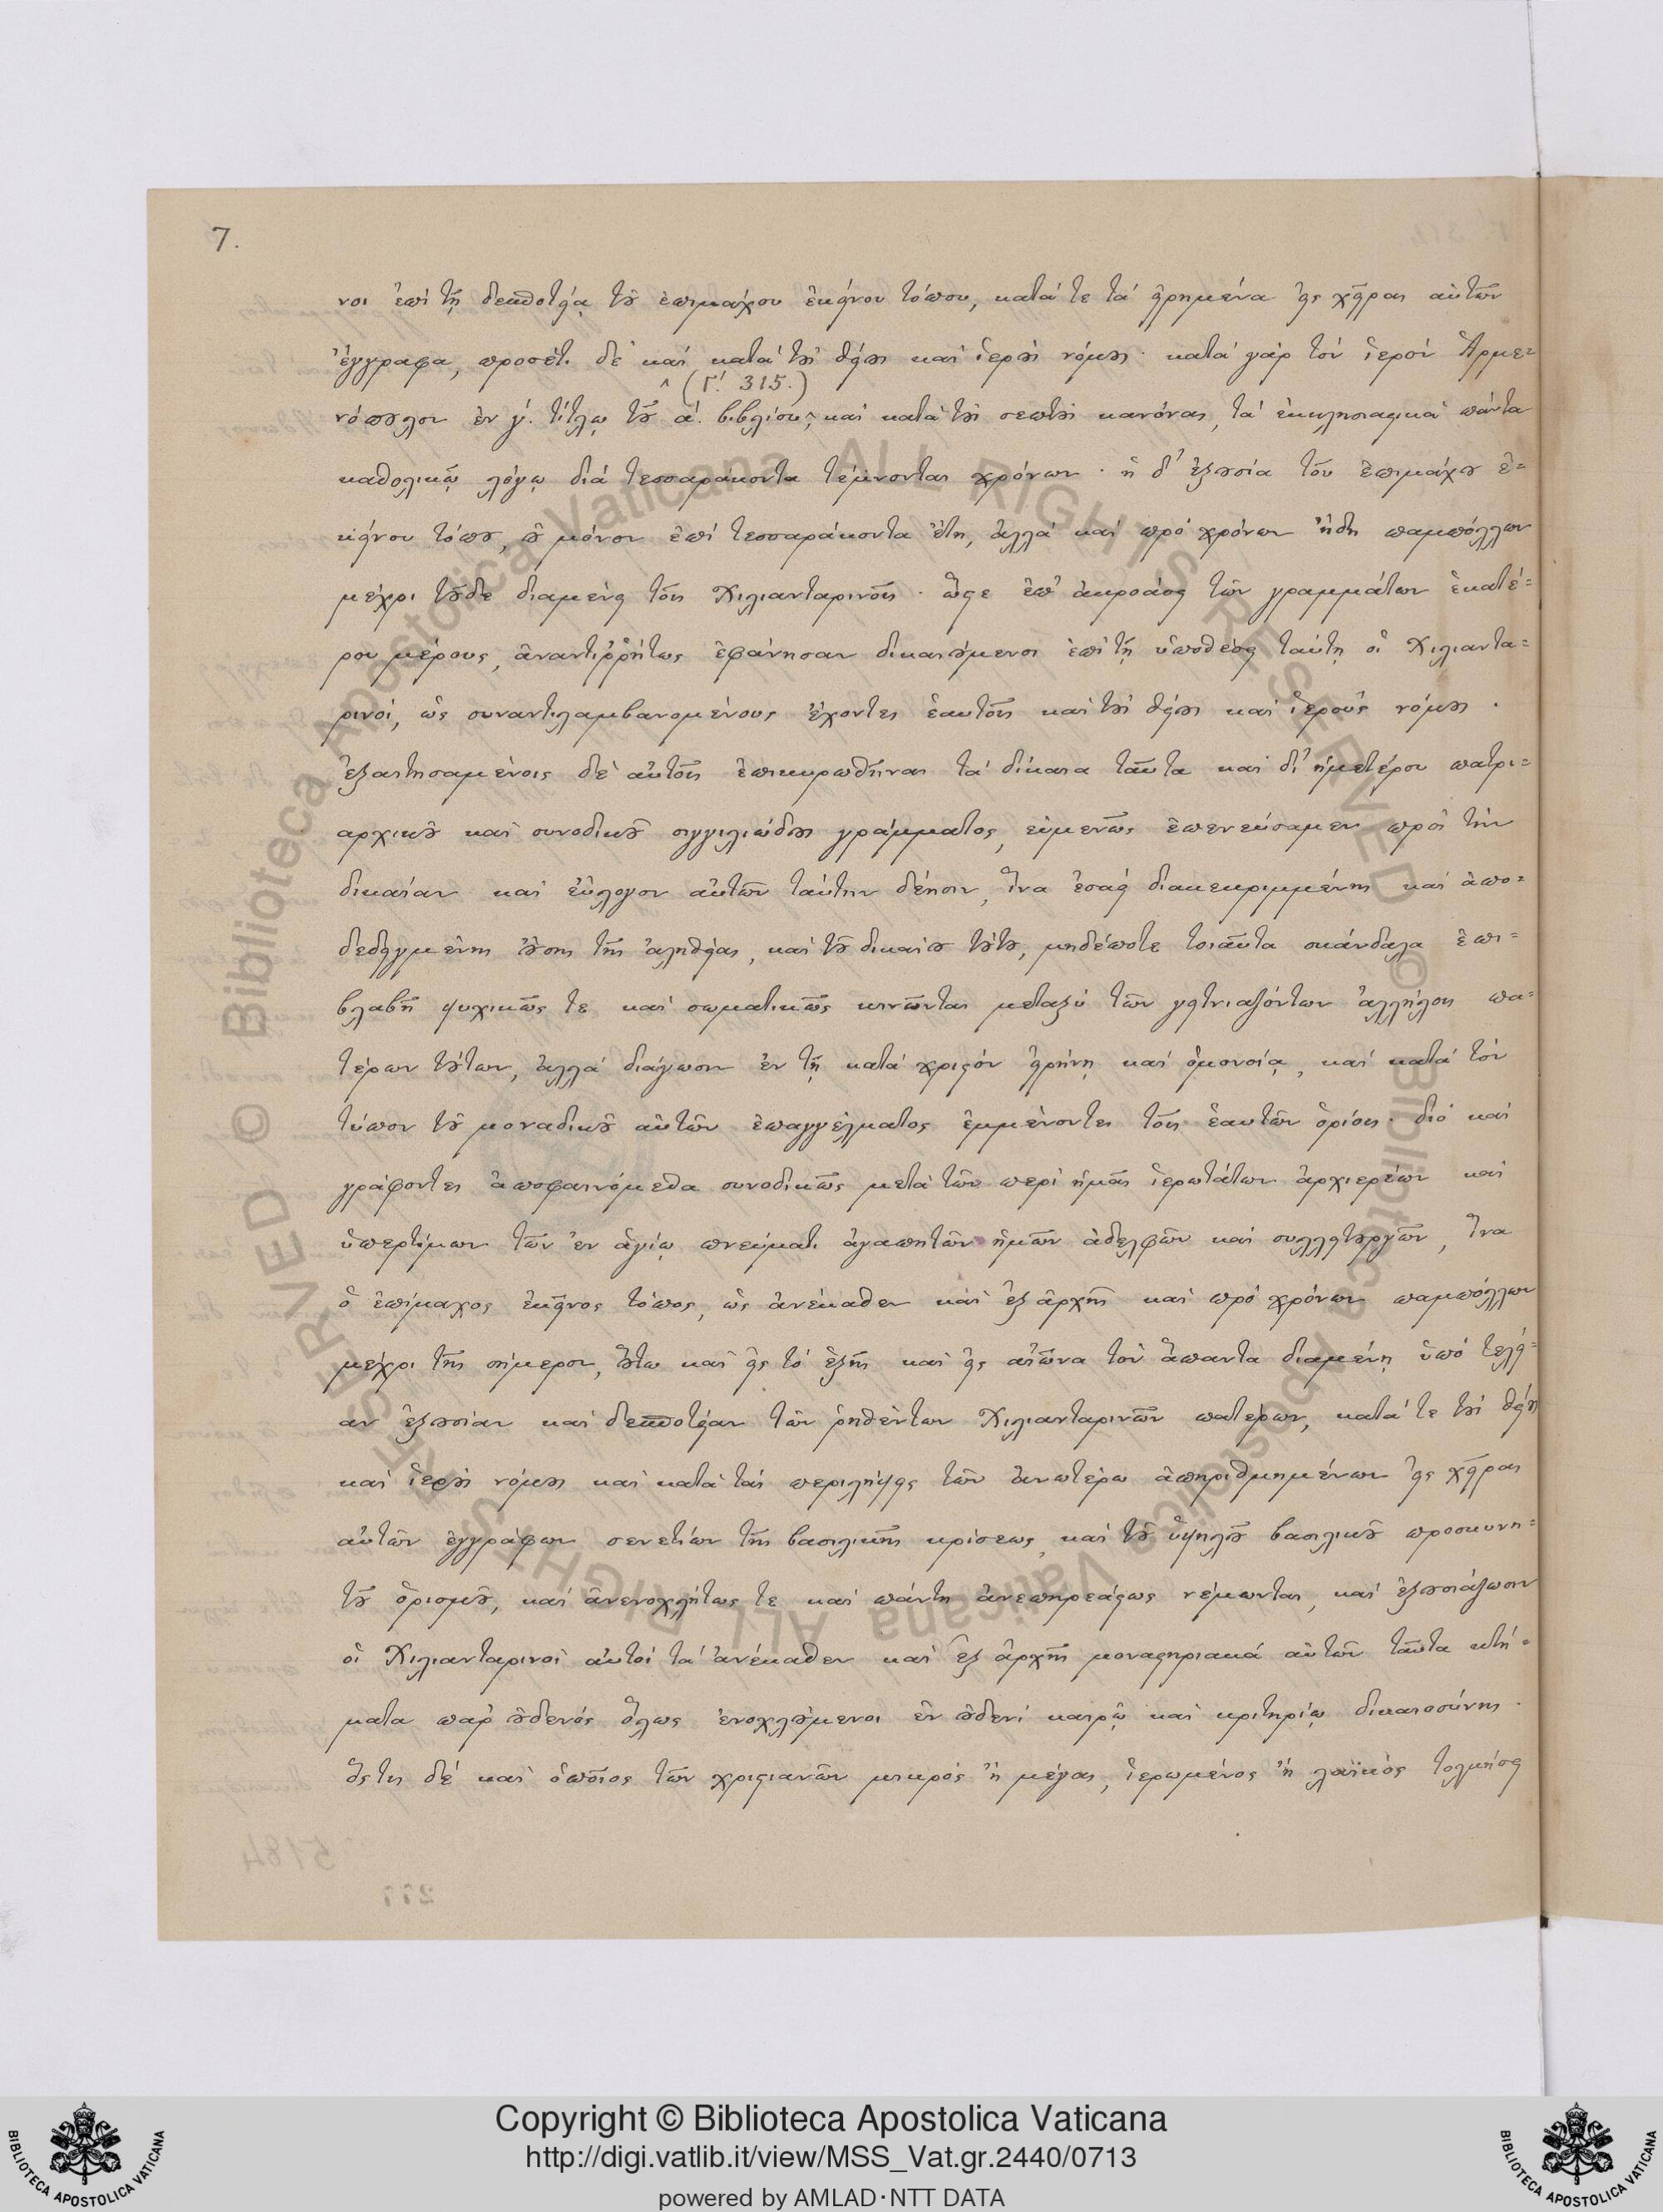 7.
νοι ἐπὶ τῇ δεσποτείᾳ τοῦ ἐπιμάχου ἐκείνου τόπου, κατά τε τὰ εἰρημένα εἰς χεῖρας αὐτῶν
ἔγγραφα, προσέτι δὲ καὶ κατὰ τοὺς θείους καὶ ἱεροὺς νόμους· κατὰ γὰρ τὸν ἱερὸν Ἁρμε=
^ (Γ΄. 315.)
νόπουλον ἐν γ΄. τίτλῳ τοῦ α΄. βιβλίου^, καὶ κατὰ τοὺς σεπτοὺς κανόνας, τὰ ἐκκλησιαστικὰ πάντα
καθολικῷ λόγῳ διὰ τεσσαράκοντα τέμνονται χρόνων· ἡ δ' ἐξουσία τοῦ ἐπιμάχου ἐ=
κείνου τόπου, οὐ μόνον ἐπὶ τεσσαράκοντα ἔτη, ἀλλὰ καὶ πρὸ χρόνων ἤδη παμπόλλων
μέχρι τοῦδε διαμένει τοῖς Χιλιανταρινοῖς· ὥστε ἐπ' ἀκροάσει τῶν γραμμάτων ἑκατέ=
ρου μέρους, ἀναντιῤῥήτως ἐφάνησαν δικαιούμενοι ἐπὶ τῇ ὑποθέσει ταύτῃ οἱ Χιλιαντα=
ρινοί, ὡς συναντιλαμβανομένους ἔχοντες ἑαυτοῖς καὶ τοὺς θείους καὶ ἱεροὺς νόμους.
ἐξαιτησαμένοις δὲ αὐτοῖς ἐπικυρωθῆναι τὰ δίκαια ταῦτα καὶ δι' ἡμετέρου πατρι=
αρχικοῦ καὶ συνοδικοῦ σιγγιλιώδους γράμματος, εὐμενῶς ἐπενεύσαμεν πρὸς τὴν
δικαίαν καὶ εὔλογον αὐτῶν ταύτην δέησιν, ἵνα ἐσαεὶ διακεκριμμένης καὶ ἀπο=
δεδειγμένης οὔσης τῆς ἀληθείας, καὶ τοῦ δικαίου τούτου, μηδέποτε τοιαῦτα σκάνδαλα ἐπι=
βλαβῆ ψυχικῶς τε καὶ σωματικῶς κινῶνται μεταξὺ τῶν γειτνιαζόντων ἀλλήλοις πα=
τέρων τούτων, ἀλλὰ διάγωσιν ἐν τῇ κατὰ χριστὸν εἰρήνῃ καὶ ὁμονοίᾳ, καὶ κατὰ τὸν
τύπον τοῦ μοναδικοῦ αὐτῶν ἐπαγγέλματος ἐμμένοντες τοῖς ἑαυτῶν ὁρίοις· διὸ καὶ
γράφοντες ἀποφαινόμεθα συνοδικῶς μετὰ τῶν περὶ ἡμᾶς ἱερωτάτων ἀρχιερέων καὶ
ὑπερτίμων τῶν ἐν ἁγίῳ πνεύματι ἀγαπητῶν ἡμῶν ἀδελφῶν καὶ συλλειτουργῶν, ἵνα
ὁ ἐπίμαχος ἐκεῖνος τόπος, ὡς ἀνέκαθεν καὶ ἐξ ἀρχῆς καὶ πρὸ χρόνων παμπόλλων
μέχρι τῆς σήμερον, οὕτω καὶ εἰς τὸ ἑξῆς καὶ εἰς αἰῶνα τὸν ἅπαντα διαμένῃ ὑπὸ τελεί=
αν ἐξουσίαν καὶ δεσποτείαν τῶν ῥηθέντων Χιλιανταρινῶν πατέρων, κατά τε τοὺς θείους
καὶ ἱεροὺς νόμους καὶ κατὰ τὰς περιλήψεις τῶν ἀνωτέρω ἀπηριθμημένων εἰς χεῖρας
αὐτῶν ἐγγράφων σενετίων τῆς βασιλικῆς κρίσεως, καὶ τοῦ ὑψηλοῦ βασιλικοῦ προσκυνη=
τοῦ ὁρισμοῦ, καὶ ἀνενοχλήτως τε καὶ πάντη ἀνεπηρεάστως νέμωνται, καὶ ἐξουσιάζωσιν
οἱ Χιλιανταρινοὶ αὐτοὶ τὰ ἀνέκαθεν καὶ ἐξ ἀρχῆς μοναστηριακὰ αὐτῶν ταῦτα κτή=
ματα παρ' οὐδενὸς ὅλως ἐνοχλούμενοι ἐν οὐδενὶ καιρῷ καὶ κριτηρίῳ δικαιοσύνης.
ὅστις δὲ καὶ ὁποῖος τῶν χριστιανῶν μικρὸς ἢ μέγας, ἱερωμένος ἢ λαϊκὸς τολμήσει
Copyright © Biblioteca Apostolica Vaticana
http://digi.vatlib.it/view/MSS_Vat.gr.2440/0713
powered by AMLAD·NTT DATA
BIBLIOTECA APOSTOLICA VATICANA
BIBLIOTECA APOSTOLICA VATICANA
© Biblioteca Apostolica Vaticana ALL RIGHTS RESERVED
© Biblioteca Apostolica Vaticana ALL RIGHTS RESERVED